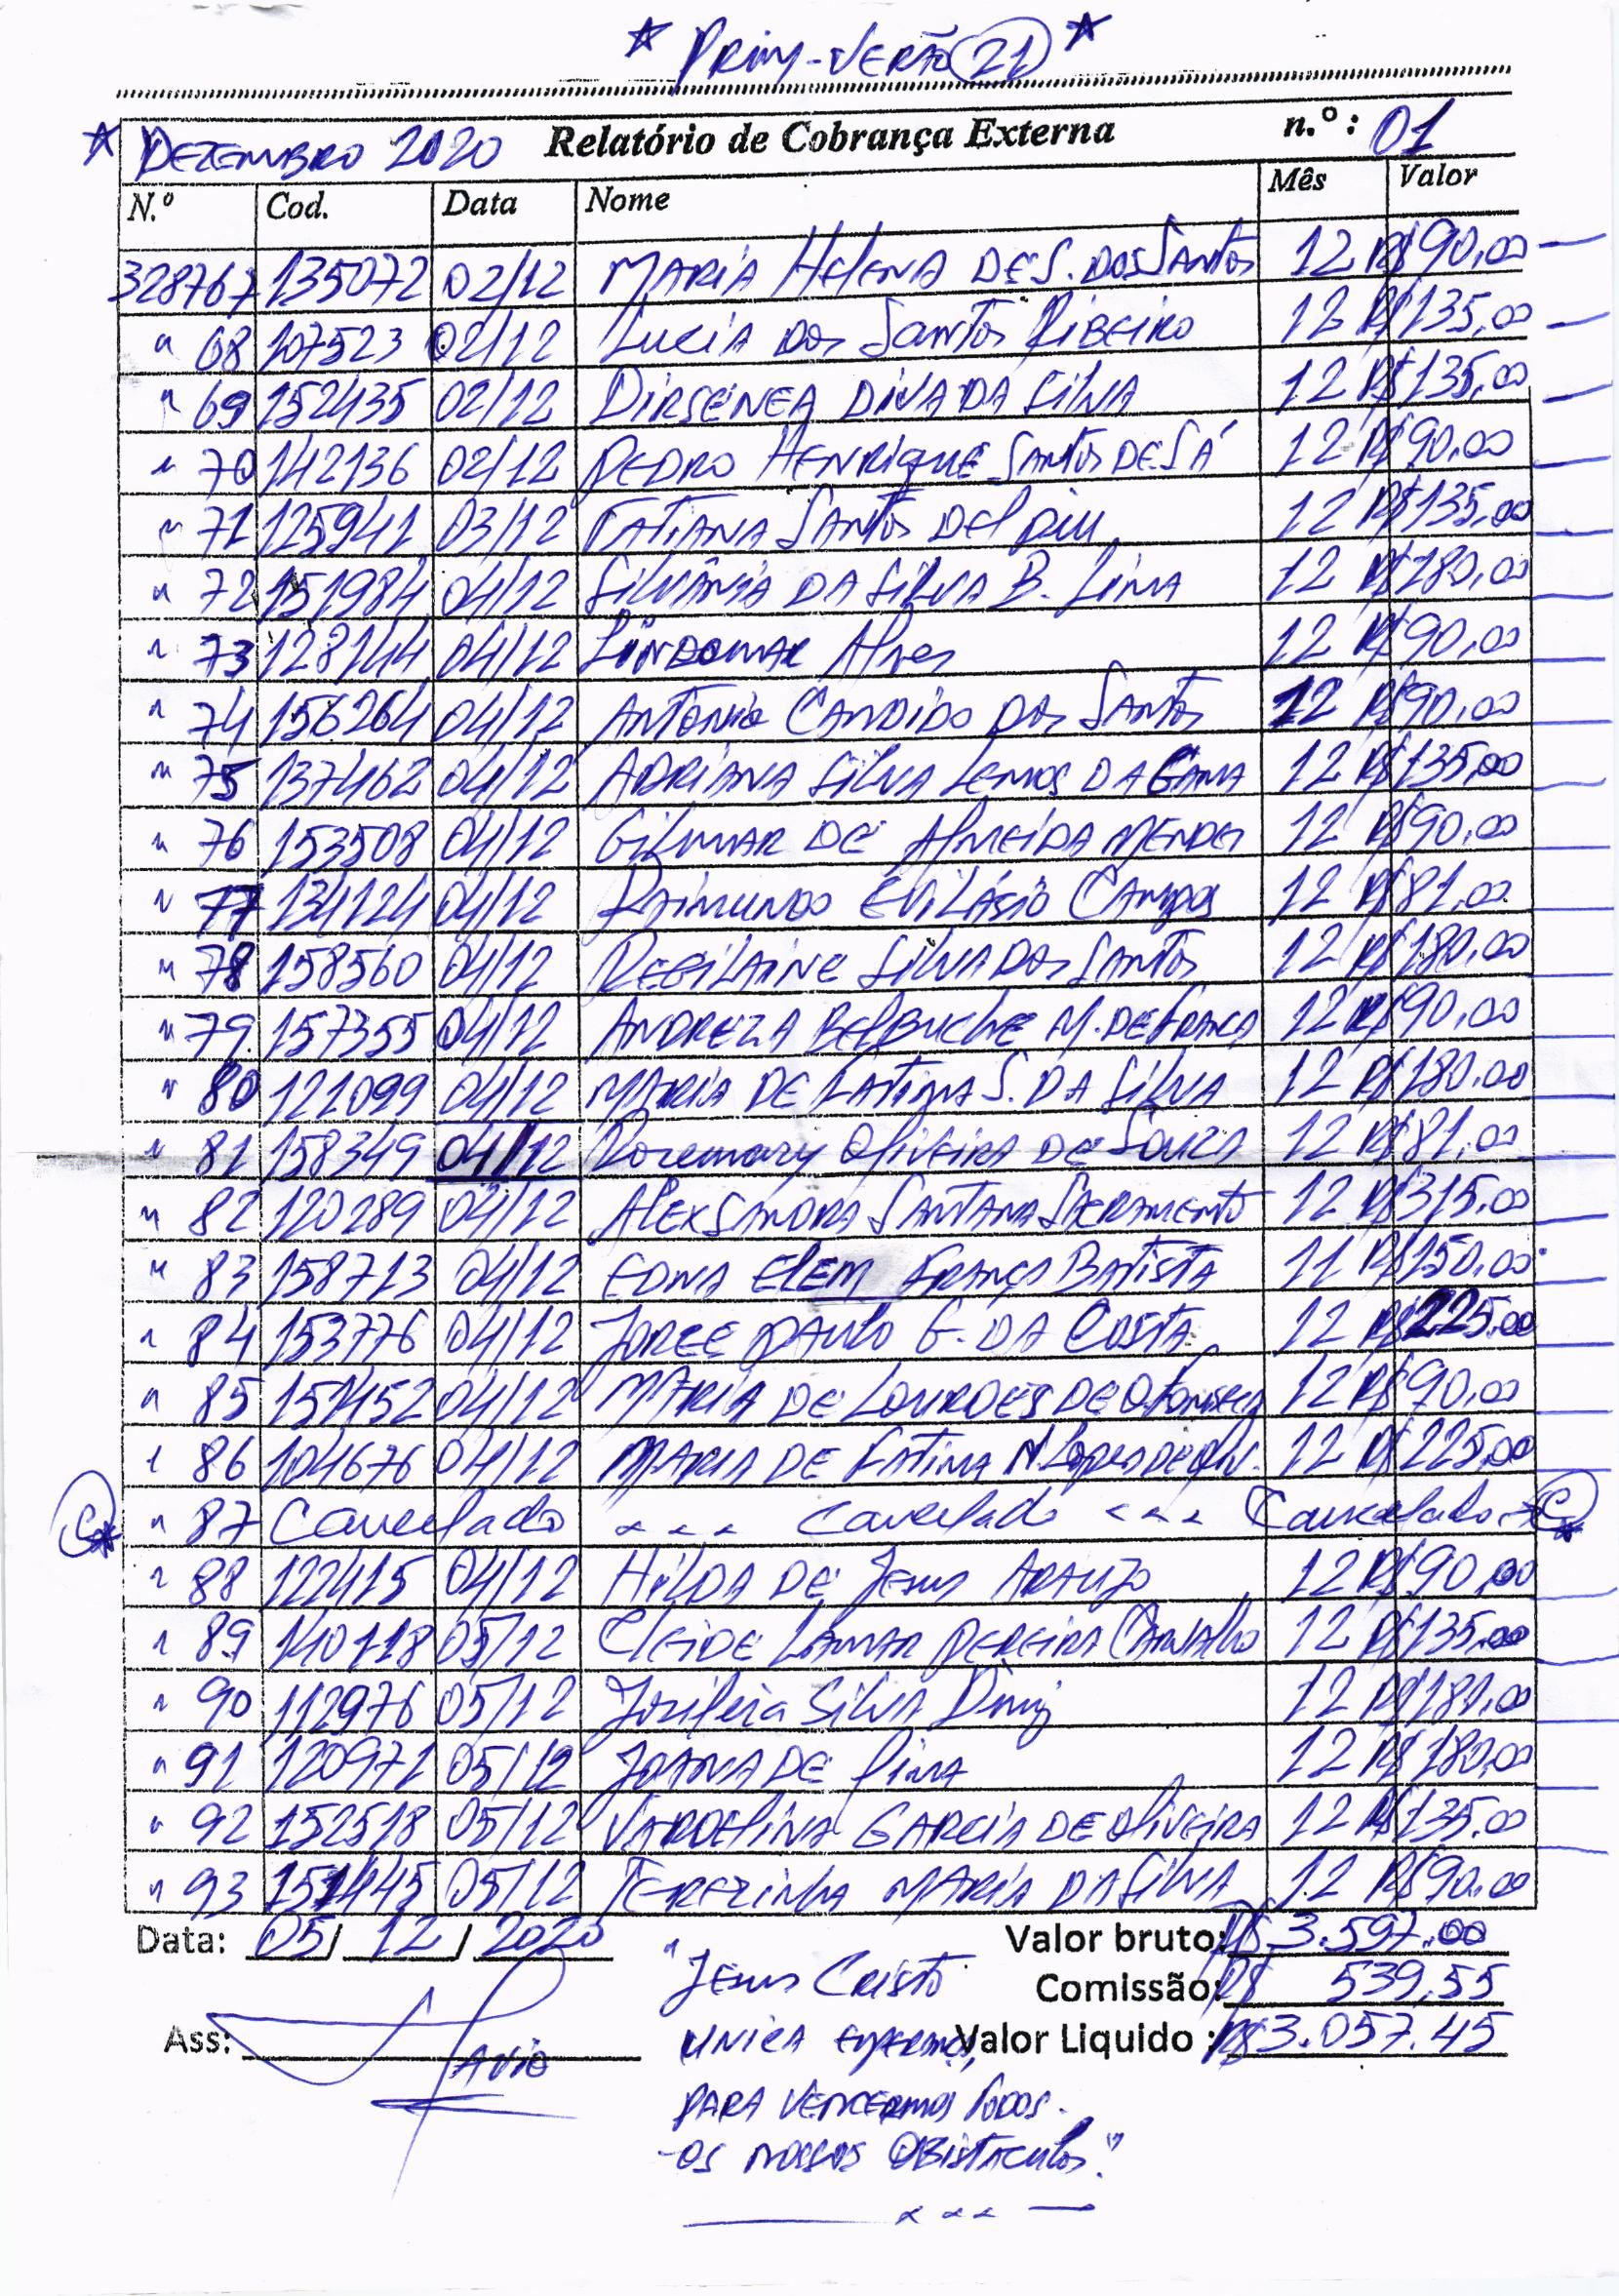 * PRIM-VERÃO 21 *
* DEZEMBRO 2020 Relatório de Cobrança Externa n.º: 01
N.º Cod. Data Nome Mês Valor
328767 135072 02/12 MARIA HELENA DE S. DOS SANTOS 12 R$90,00
" 68 107523 02/12 LUCIA DOS SANTOS RIBEIRO 12 R$135,00
" 69 152435 02/12 DIRSENEA DIVA DA SILVA 12 R$135,00
" 70 142136 02/12 PEDRO HENRIQUE SANTOS DE SÁ 12 R$90,00
" 71 125941 03/12 TATIANA SANTOS DEL 12 R$135,00
" 72 151984 04/12 SILVÂNIA DA SILVA B. LIMA 12 R$180,00
" 73 128144 04/12 LINDOMAR ALVES 12 R$90,00
" 74 156264 04/12 ANTONIO CANDIDO DOS SANTOS 12 R$90,00
" 75 137462 04/12 ADRIANA SILVA LEMOS DA GAMA 12 R$135,00
" 76 153508 04/12 GILMAR DE ALMEIDA MENDES 12 R$90,00
" 77 134124 04/12 RAIMUNDO EVILÁSIO CAMPOS 12 R$81,00
" 78 158560 04/12 REGILAINE SILVA DOS SANTOS 12 R$180,00
" 79 157355 04/12 ANDREZA BELBUCHE M. DE FRANÇA 12 R$90,00
" 80 121099 04/12 MARIA DE FATIMA S. DA SILVA 12 R$180,00
" 81 158349 04/12 Rosemary OLIVEIRA DE SOUZA 12 R$81,00
" 82 120289 04/12 ALEXSANDRA SANTANA SACRAMENTO 12 R$315,00
" 83 158713 04/12 EDNA ELEM FRANÇA BATISTA 11 R$150,00
" 84 153776 04/12 JORGE PAULO G. DA COSTA 12 R$225,00
" 85 151452 04/12 MARIA DE LOURDES DE O. FONSECA 12 R$90,00
" 86 104676 04/12 MARIA DE FATIMA N. LOPES DE OLIV. 12 R$225,00
C* " 87 Cancelado Cancelado Cancelado C*
" 88 122415 04/12 HILDA DE JESUS ARAUJO 12 R$90,00
" 89 140118 05/12 CLEIDE LAMAR PEREIRA CARVALHO 12 R$135,00
" 90 112976 05/12 SILVA DINIZ 12 R$180,00
" 91 120971 05/12 JOANA DE LIMA 12 R$180,00
" 92 152518 05/12 VARDELINA GARCIA DE OLIVEIRA 12 R$135,00
" 93 151445 05/12 TEREZINHA MARIA DA SILVA 12 R$90,00
Data: 05/ 12 / 2020 Valor bruto: R$ 3.597,00
"JESUS CRISTO Comissão: R$ 539,55
Ass: UNICA ESPERANÇA, Valor Liquido : R$3.057,45
PARA VENCERMOS TODOS
OS NOSSOS OBISTACULOS."